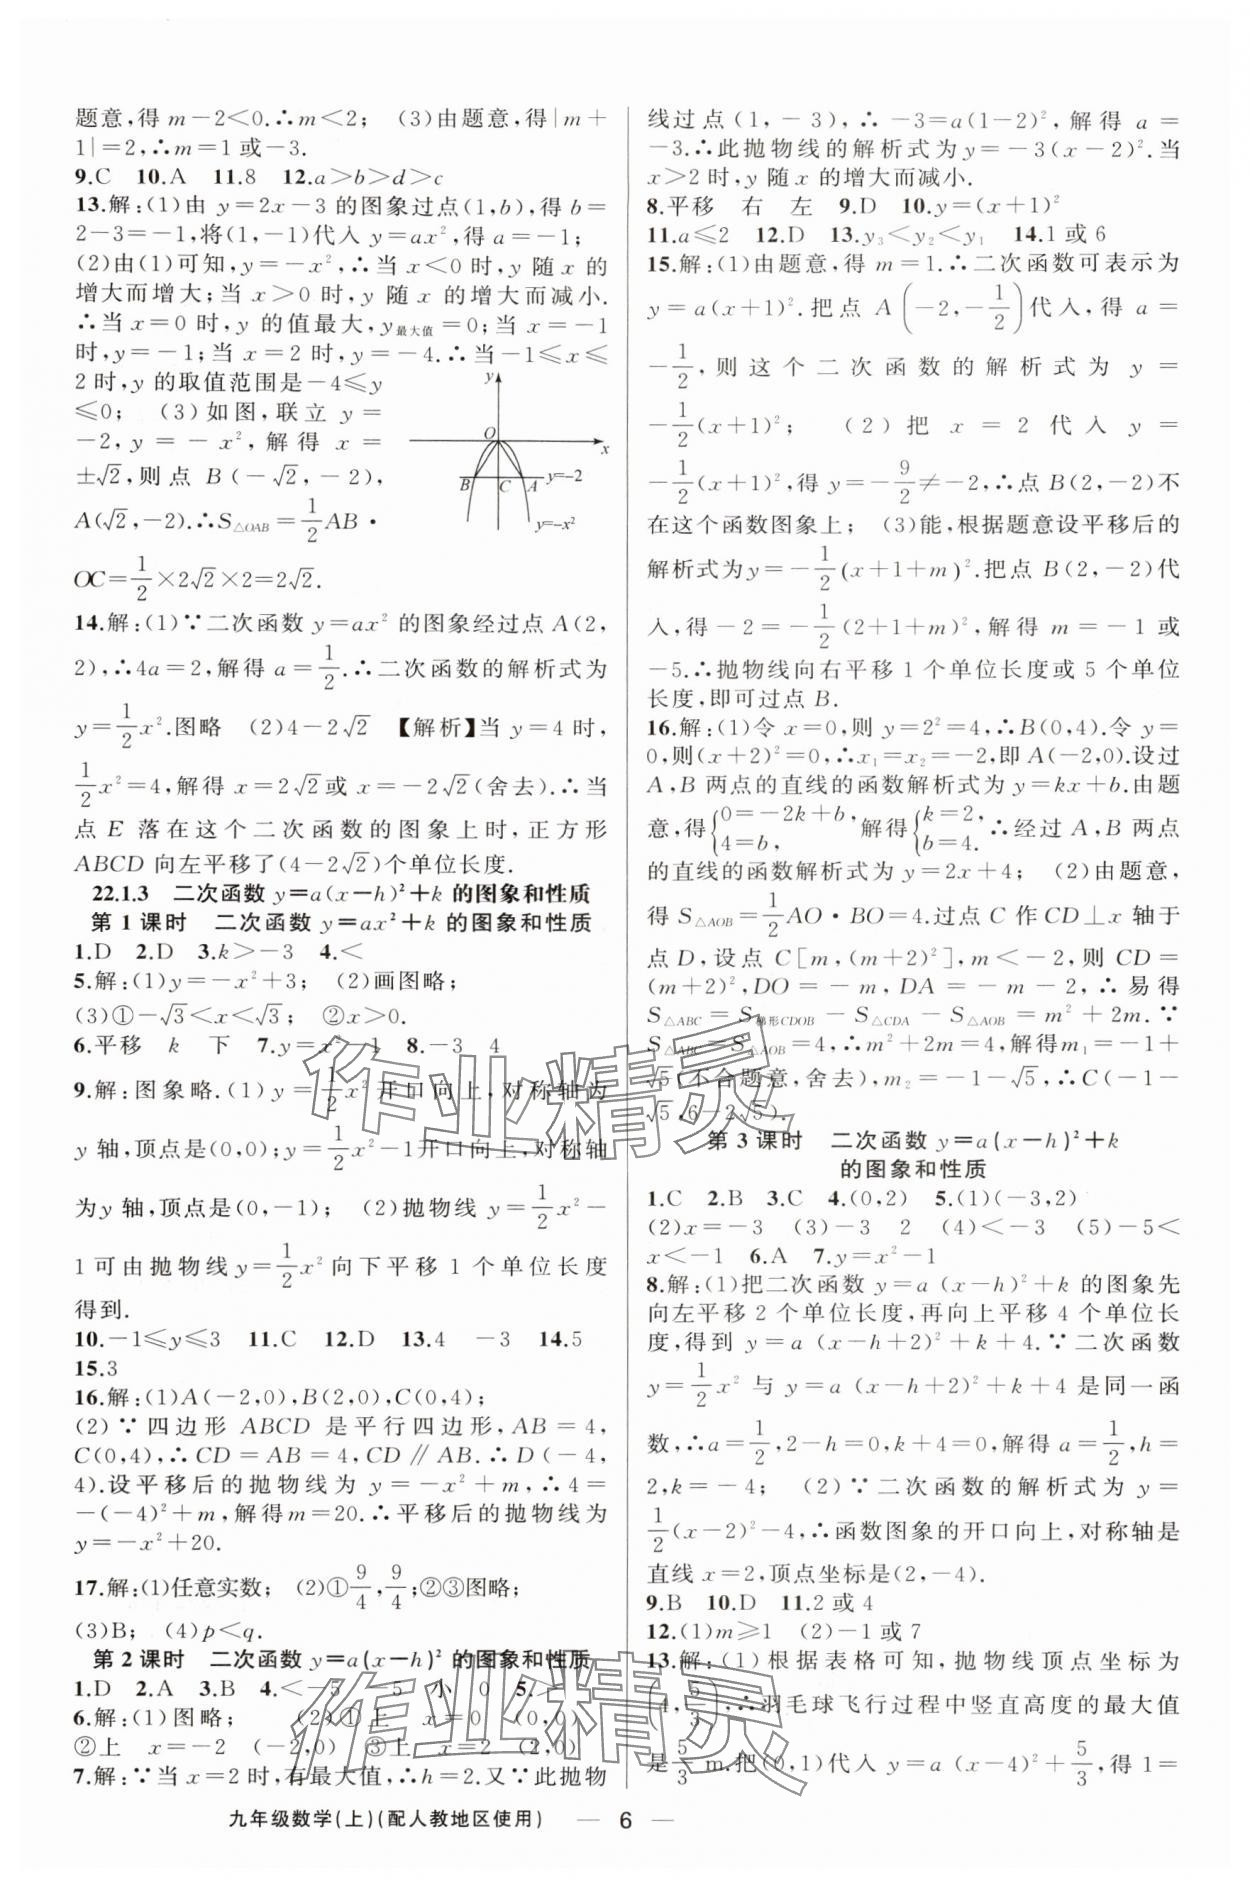 题意,得 m-2<0.∴m<2; (3)由题意,得|m+
1|=2,∴m=1或-3.
9.C 10.A 11.8 12.a>b>d>c
13.解:(1)由 y=2x-3 的图象过点(1,b),得 b=
2-3=-1,将(1,-1)代入 y=ax²,得 a=-1;
(2)由(1)可知,y=-x²,∴当 x<0 时,y 随 x 的
增大而增大;当 x>0 时,y 随 x 的增大而减小.
∴当 x=0 时,y 的值最大,y最大值=0;当 x=-1
时,y=-1;当 x=2 时,y=-4.∴当-1≤x≤
2时,y的取值范围是-4≤y
≤0; (3)如图,联立 y=
-2,y=-x²,解得 x=
±√2,则点 B(-√2,-2),
A(√2,-2).∴S△OAB=1/2AB·
OC=1/2×2√2×2=2√2.
y
O
x
B
C
A
y=-2
y=-x²
14.解:(1)∵二次函数 y=ax² 的图象经过点 A(2,
2),∴4a=2,解得 a=1/2.∴二次函数的解析式为
y=1/2x².图略 (2)4-2√2 【解析】当 y=4 时,
1/2x²=4,解得 x=2√2或 x=-2√2(舍去).∴当
点 E 落在这个二次函数的图象上时,正方形
ABCD 向左平移了(4-2√2)个单位长度.
22.1.3 二次函数 y=a(x-h)²+k 的图象和性质
第 1 课时 二次函数 y=ax²+k 的图象和性质
1.D 2.D 3.k>-3 4.<
5.解:(1)y=-x²+3; (2)画图略;
(3)①-√3<x<√3; ②x>0.
6.平移 k 下 7.y=x²-1 8.-3 4
9.解:图象略.(1)y=1/2x²开口向上,对称轴为
y 轴,顶点是(0,0);y=1/2x²-1开口向上,对称轴
为y 轴,顶点是(0,-1); (2)抛物线 y=1/2x²-
1可由抛物线y=1/2x²向下平移 1 个单位长度
得到.
10.-1≤y≤3 11.C 12.D 13.4 -3 14.5
15.3
16.解:(1)A(-2,0),B(2,0),C(0,4);
(2)∵四边形 ABCD 是平行四边形,AB=4,
C(0,4),∴CD=AB=4,CD∥AB.∴D(-4,
4).设平移后的抛物线为 y=-x²+m,∴4=
-(-4)²+m,解得m=20.∴平移后的抛物线为
y=-x²+20.
17.解:(1)任意实数; (2)①9/4,9/4;②③图略;
(3)B; (4)p<q.
第 2 课时 二次函数 y=a(x-h)² 的图象和性质
1.D 2.A 3.B 4.<-5 -5 小 0 5.>
6.解:(1)图略; (2)①上 x=0 (0,0)
②上 x=-2 (-2,0) ③上 x=2 (2,0)
7.解:∵当 x=2 时,有最大值,∴h=2.又∵此抛物
线过点(1,-3),∴-3=a(1-2)²,解得 a=
-3.∴此抛物线的解析式为y=-3(x-2)².当
x>2 时,y 随 x 的增大而减小.
8.平移 右 左 9.D 10.y=(x+1)²
11.a≤2 12.D 13.y₃<y₂<y₁ 14.1 或 6
15.解:(1)由题意,得 m=1.∴二次函数可表示为
y=a(x+1)².把点 A(-2,-1/2)代入,得 a=
-1/2,则这个二次函数的解析式为 y=
-1/2(x+1)²; (2)把 x=2 代入 y=
-1/2(x+1)²,得 y=-9/2≠-2,∴点 B(2,-2)不
在这个函数图象上; (3)能,根据题意设平移后的
解析式为y=-1/2(x+1+m)².把点 B(2,-2)代
入,得-2=-1/2(2+1+m)²,解得 m=-1 或
-5.∴抛物线向右平移 1 个单位长度或 5 个单位
长度,即可过点 B.
16.解:(1)令 x=0,则 y=2²=4,∴B(0,4).令 y=
0,则(x+2)²=0,∴x₁=x₂=-2,即 A(-2,0).设过
A,B 两点的直线的函数解析式为 y=kx+b.由题
意,得{0=-2k+b,4=b,解得{k=2,b=4.∴经过 A,B 两点
的直线的函数解析式为 y=2x+4; (2)由题意,
得 S△AOB=1/2AO·BO=4.过点 C 作 CD⊥x 轴于
点 D,设点 C[m,(m+2)²],m<-2,则 CD=
(m+2)²,DO=-m,DA=-m-2,∴易得
S△ABC=S梯形CDOB-S△CDA-S△AOB=m²+2m.∵
S△ABC=S△AOB=4,∴m²+2m=4,解得m₁=-1+
√5(不合题意,舍去),m₂=-1-√5,∴C(-1-
√5,6-2√5).
第 3 课时 二次函数 y=a(x-h)²+k
的图象和性质
1.C 2.B 3.C 4.(0,2) 5.(1)(-3,2)
(2)x=-3 (3)-3 2 (4)<-3 (5)-5<
x<-1 6.A 7.y=x²-1
8.解:(1)把二次函数 y=a(x-h)²+k 的图象先
向左平移 2 个单位长度,再向上平移 4 个单位长
度,得到 y=a(x-h+2)²+k+4.∵二次函数
y=1/2x² 与 y=a(x-h+2)²+k+4 是同一函
数,∴a=1/2,2-h=0,k+4=0,解得 a=1/2,h=
2,k=-4; (2)∵二次函数的解析式为 y=
1/2(x-2)²-4,∴函数图象的开口向上,对称轴是
直线 x=2,顶点坐标是(2,-4).
9.B 10.D 11.2 或 4
12.(1)m≥1 (2)-1 或 7
13.解:(1)根据表格可知,抛物线顶点坐标为
(4,5/3),∴羽毛球飞行过程中竖直高度的最大值
是5/3 m.把(0,1)代入 y=a(x-4)²+5/3,得 1=
九年级数学(上)(配人教地区使用) — 6 —
作业精灵
作业精灵